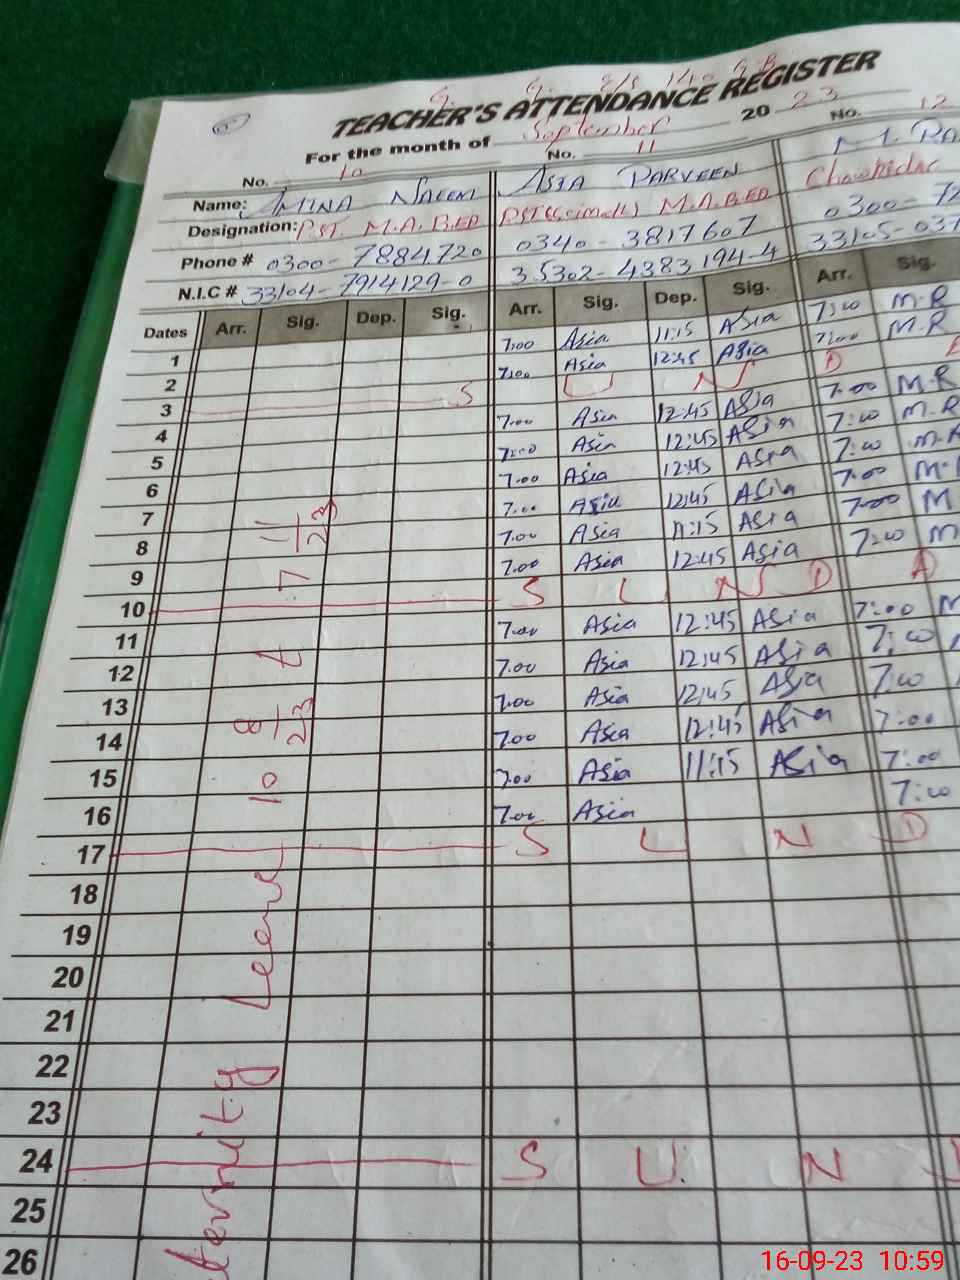 G. G. E/S 140 G.B
TEACHER'S ATTENDANCE REGISTER
For the month of September 20 23
No. 10 No. 11 No. 12
Name: AMINA NAEEM ASIA PARVEEN M. RA
Designation: PST. M.A. B.ED PST M.A.B.ED Chowkidar
Phone # 0300-7884720 0340-3817607 0300-72
N.I.C # 33104-7914129-0 35302-4383194-4 33105-037
Dates Arr. Sig. Dep. Sig. Arr. Sig. Dep. Sig. Arr. Sig.
1 7:00 Asia 11:15 Asia 7:00 M.R
2 7:00 Asia 12:45 Asia 7:00 M.R
3 S U N D
4 7:00 Asia 12:45 Asia 7:00 M.R
5 7:00 Asia 12:45 Asia 7:00 M.R
6 7:00 Asia 12:45 Asia 7:00 M.R
7 7:00 Asia 12:45 Asia 7:00 M.
8 7.00 Asia 11:15 Asia 7:00 M
9 7.00 Asia 12:45 Asia 7:00 M
10 S U N D A
11 7:00 Asia 12:45 Asia 7:00 M
12 7.00 Asia 12:45 Asia 7:00
13 7:00 Asia 12:45 Asia 7:00
14 7.00 Asia 12:45 Asia 7:00
15 7.00 Asia 11:15 Asia 7:00
16 7.00 Asia 7:00
17 S U N D
18
19
20
21
22
23
24 S U N
25
26
ternity Leave 10 8/23 t 7 11/23
16-09-23 10:59